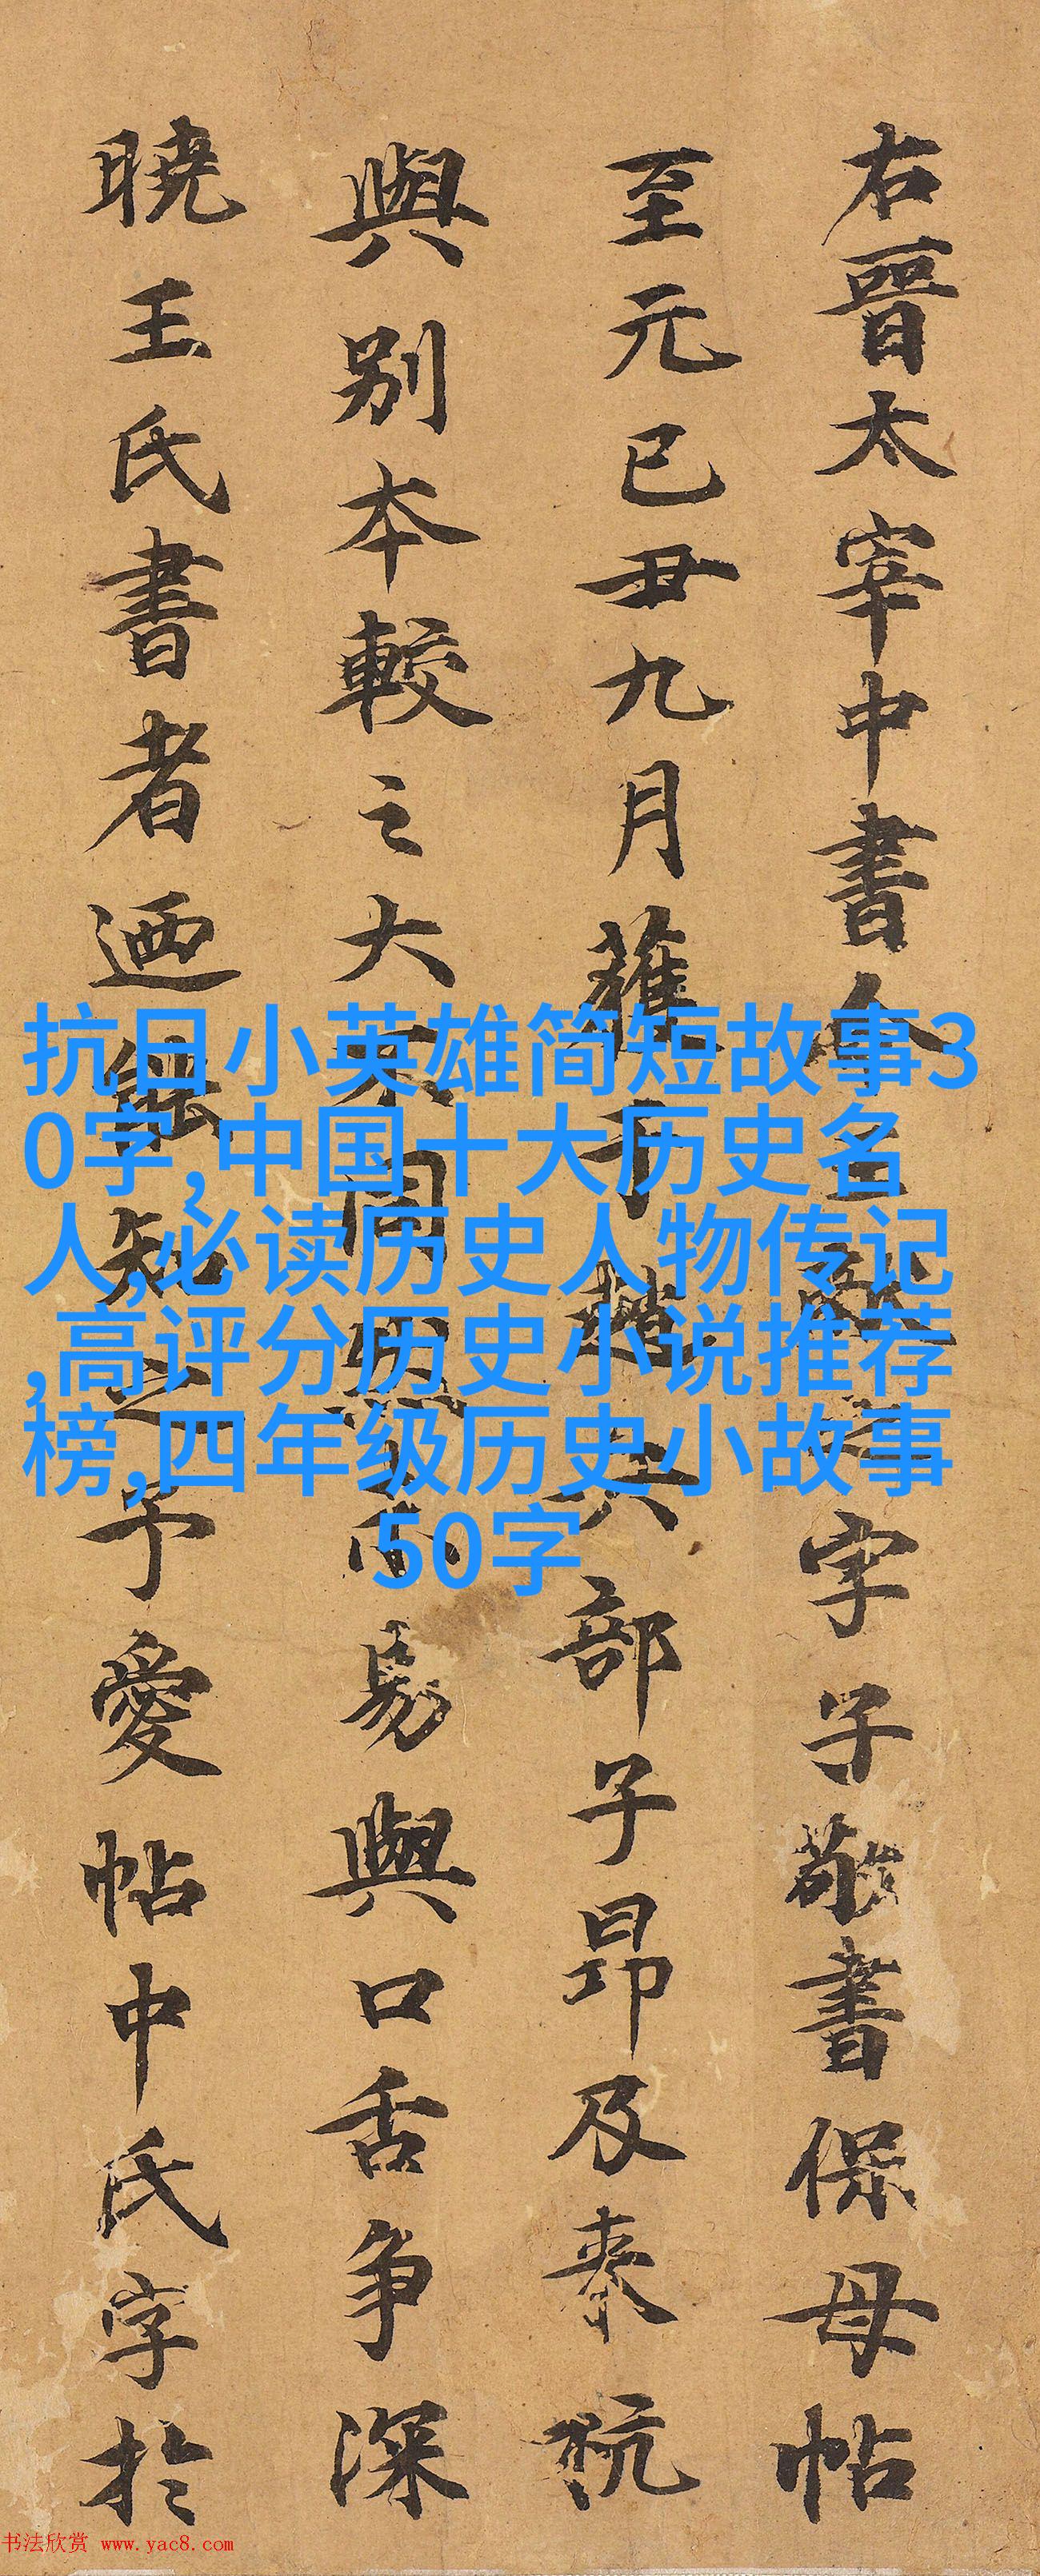 右晉太宰中書令王獻之字子敬書保母帖
至元己丑九月獲于越六部子昂及來杭
與别本較之大不同
易與口舌争深
曉王氏書者迺能知之予愛帖中氏字於
抗日小英雄简短故事3
0字,中国十大历史名
人,必读历史人物传记
,高评分历史小说推荐
榜,四年级历史小故事
50字
书法欣赏 www.yac8.com